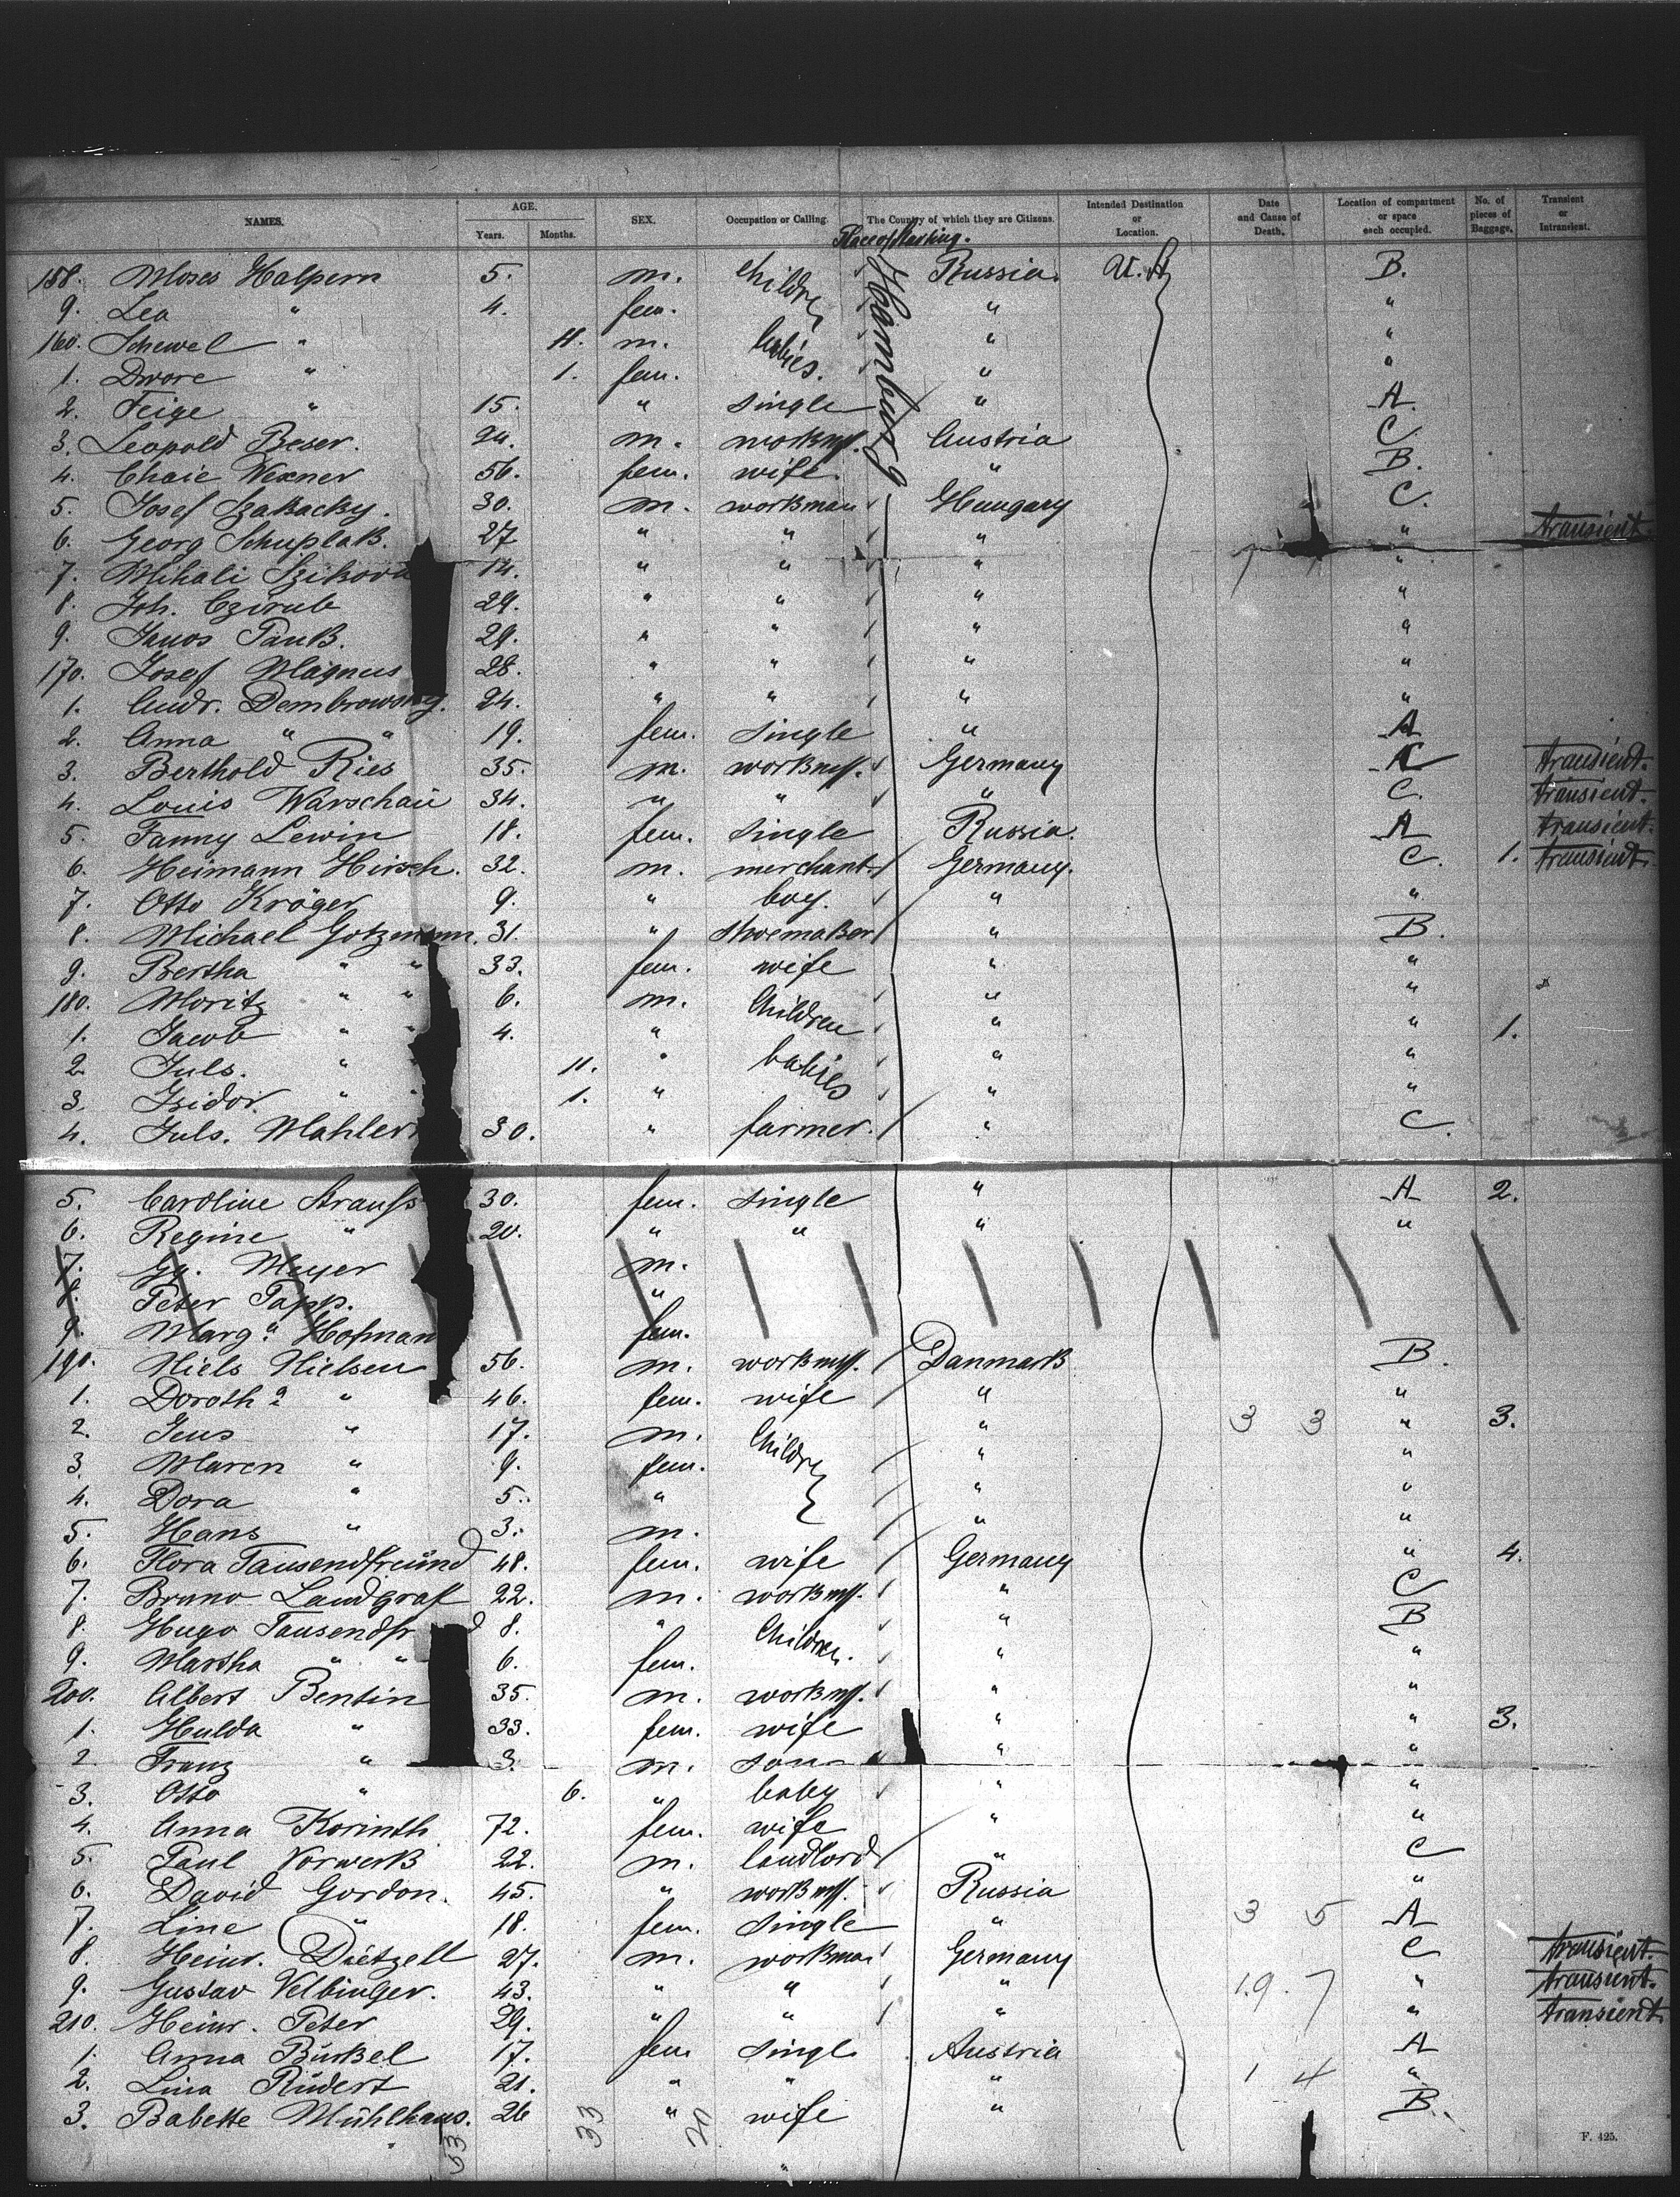 NAMES. AGE. Years. Months. SEX. Occupation or Calling. The Country of which they are Citizens. Intended Destination or Location. Date and Cause of Death. Location of compartment or space each occupied. No. of pieces of Baggage. Transient or Intransient.
Place of Starting.
Hamburg
158. Moses Halpern 5. m. Children Russia. U.S. B.
9. Lea " 4. fem. "  "
160. Schewel " 11. m. babies. " "
1. Dwore " 1. fem. " "
2. Feige " 15. " single " A.
3. Leopold Beser. 24. m. workm. Austria C.
4. Chaie Wexner 56. fem. wife. " B.
5. Josef Szakacky. 30. m. workman Hungary C.
6. Georg Schuplak. 27 " " " " transient
7. Mihali 14. " " " "
8. Joh. Czirub 29. " " " "
9. Janos Pank. 29. " " " "
170. Josef Magnus 28. " " " "
1. Andr. Dembrowsky. 24. " " " "
2. Anna " " 19. fem. single " A
3. Berthold Ries 35. m. workm. Germany C transient.
4. Louis Warschau 34. " " " C. transient.
5. Fanny Lewin 18. fem. single Russia. A transient.
6. Heimann Hirsch. 32. m. merchant. Germany. C. 1. transient.
7. Otto Kröger 9. " boy. " "
8. Michael Gotzmann. 31. " shoemaker " B.
9. Bertha " " 33. fem. wife " "
180. Moritz " " 6. m. Children " "
1. Jacob " " 4. " " " 1.
2. Juls. " 11. " babies " "
3. Isidor. " 1. " " "
4. Juls. Mahler 30. " farmer. " C.
5. Caroline Strauss 30. fem. single " A 2.
6. Regine " 20. " " " "
7. Gg. Meyer m.
8. Peter Papp. "
9. Marg.a Hofman fem.
190. Niels Nielsen 56. m. workm. Danmark B.
1. Doroth.a " 46. fem. wife " "
2. Jens " 17. m. Children " 3 3 " 3.
3. Maren " 9. fem. " "
4. Dora " 5. " " "
5. Hans " 3. m. " "
6. Flora Tausendfreund 48. fem. wife Germany " 4.
7. Bruno Landgraf 22. m. workm. " C
8. Hugo Tausendfr d 8. " Children. " B
9. Martha " " 6. fem. " "
200. Albert Bentin 35. m. workm. " "
1. Hulda " 33. fem. wife " " 3.
2. Franz " 3. m. son " "
3. Otto " 6. " baby " "
4. Anna Korinth 72. fem. wife " "
5. Paul Vorwerk 22. m. landlord " C
6. David Gordon. 45. " workm. Russia "
7. Line " 18. fem. single " 3 5 A
8. Heinr. Dietzell 27. m. workman Germany C transient.
9. Gustav Velbinger. 43. " " " 19. 7 " transient.
210. Heinr. Peter 29. " " " " transient
1. Anna Bürkel 17. fem single Austria A
2. Lina Rüdert 21. " " " 1 4 "
3. Babette Mühlhaus. 26 " wife " B.
53 33 20
F. 425.